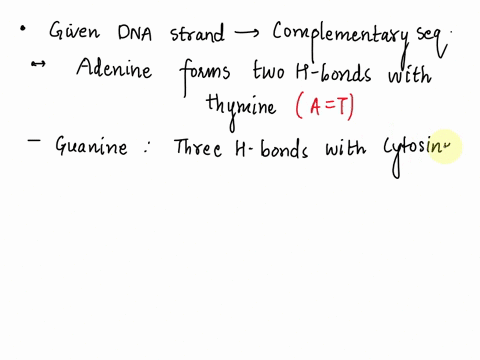 • Given DNA strand → Complementary seq.
↔ Adenine forms two H-bonds with
thymine (A=T)
– Guanine : Three H-bonds with Cytosin